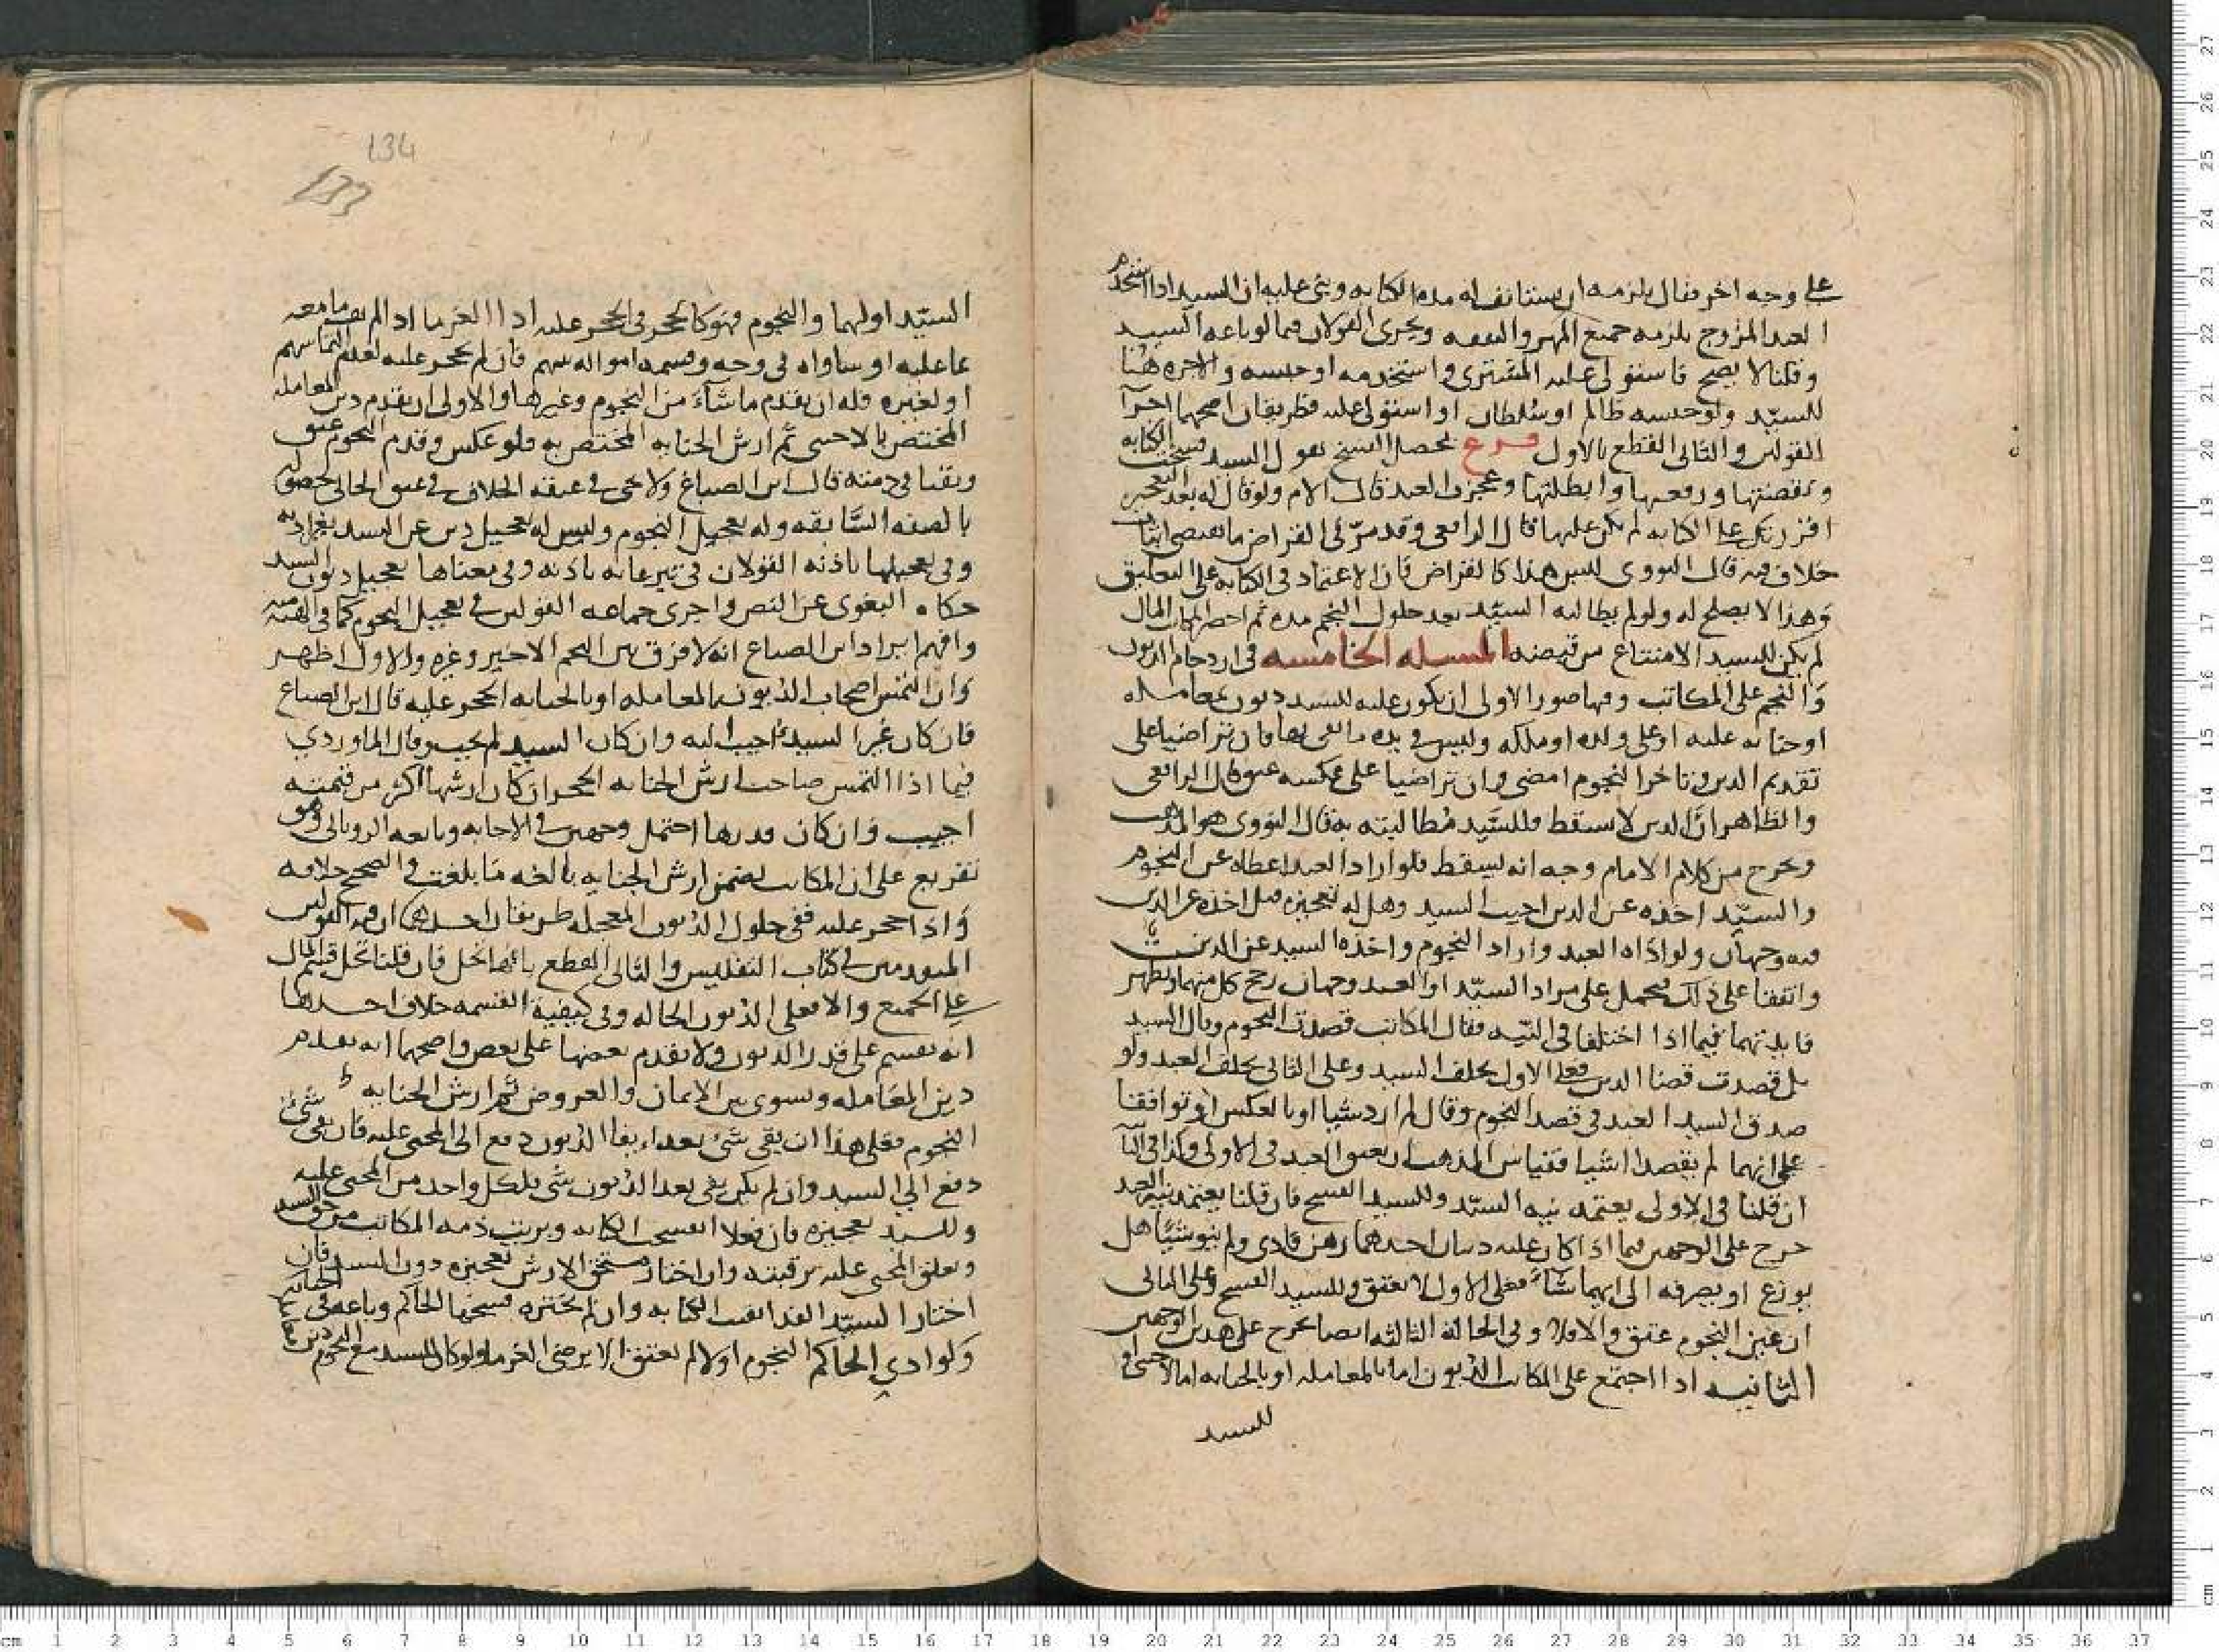 على وجه اخر فقال يلزمه ان يستانف له مدة الكتابه وبنى عليه ان السيد اذا استخدم
العبد المزوج يلزمه جميع المهر والنفقه ويجرى القولان فيما لو باعه السيد
وقلنا لا يصح فاستولى عليه المشترى واستخدمه او حبسه والاجره هنا
للسيد ولو حبسه ظالم او سلطان او استولى عليه فطريقان اصحهما اجرآ
القولين والثانى القطع بالاول فرع يحصل الفسخ بقول السيد فسخت الكتابه
ونقضتها ورفعتها وابطلتها وعجزت العبد قال الامام ولو قال له بعد التعجيز
اقررتك على الكتابه لم يكن عليها قال الرافعى وقد مرّ فى القراض ما يقتضى اثبات
خلاف فيه قال النووى ليس هذا كالقراض فان الاعتماد فى الكتابه على التعليق
وهذا لا يصلح له ولو لم يطالبه السيّد بعد حلول النجم مده ثم احضر المكاتب المال
لم يكن للسيد الامتناع من قبضه المسله الخامسه فى ازدحام الديون
والنجم على المكاتب وفيها صور الاولى ان يكون عليه للسيد ديون معامله
او جنايه عليه او على ولده او ملكه وليس فى يده ما يفى بها فان تراضيا على
تقديم الدين وتاخر النجوم امضى وان تراضيا على عكسه عتق قال الرافعى
والظاهر ان الدين لا يسقط وللسّيد مطالبته به قال النووى هو المذهب
وخرج من كلام الامام وجه انه يسقط فلو اراد العبد اعطاه عن النجوم
والسيّد اخذه عن الدين اجيب السيد وهل له تعجيزه قبل اخذه عن الدين
فيه وجهان ولو اداه العبد واراد النجوم واخذه السيد عن الدين
واتفقا على ذلك فيحمل على مراد السيّد او العبد وجهان رجح كل منهما وتظهر
فايدتهما فيما اذا اختلفا فى النيّه فقال المكاتب قصدت النجوم وقال السيد
بل قصدت قضا الدين فعلى الاول يحلف السيد وعلى الثانى يحلف العبد ولو
صدق السيد العبد فى قصد النجوم وقال لم ارد شيا او بالعكس او توافقنا
على انهما لم يقصدا شيا فقياس المذهب ان يعتق العبد فى الاولى وكذا فى
ان قلنا فى الاولى يعتمد نيه السيّد وللسيد الفسخ فان قلنا يعتمد نيه العبد
خرج على الوجهين فيما اذا كان عليه دينان احدهما رهن فادى ولم ينو شيئا هل
يوزع او يصرفه الى ايهما شآء فعلى الاول لا يعتق وللسيد الفسخ وعلى الثانى
ان عين النجوم عتق والا فلا وفى الحاله الثالثه ايضا يخرج على هذين الوجهين
الثانيه اذا اجتمع على المكاتب الديون اما بالمعامله او بالجنايه اما لاجنبى او
للسيد
134
133
السيّد اولهما والنجوم فهو كالحجر فى الحجر عليه اذا الغرما اذا لم يف ما معه
بما عليه او ساواه فى وجه وقسمه امواله بينهم فان لم يحجر عليه لعدم التماسهم
او لغيره فله ان يقدم ما شآء من النجوم وغيرها والاولى ان يقدم دين المعامله
المختص بالاجنبى ثم ارش الجنايه المختص به فلو عكس وقدم النجوم عتق
وبقيا فى ذمته قال ابن الصباغ ولا يجى فى عتقه الخلاف فى عتق الجانى
بالصفه السّابقه وله تعجيل النجوم وليس له تعجيل دين غير السيد بغير اذنه
وفى تعجيلها باذنه القولان فى تبرعاته باذنه وفى معناها تعجيل ديون السيد
حكاه البغوى عن النص واجرى جماعه القولين فى تعجيل النجوم كما فى
وافهم ايراد ابن الصباغ انه لا فرق بين النجم الاخير وغيره والاول اظهر
وان التمس اصحاب الديون بالمعامله او بالجنايه الحجر عليه قال ابن الصباغ
فان كان غير السيد اجيب اليه وان كان السيد لم يجب وقال الماوردي
فيما اذا التمس صاحب ارش الجنايه الحجر ان كان ارشها اكثر من قيمته
اجيب وان كان قدرها احتمل وجهين فى الاجابه وتابعه الرويانى وهو
تفريع على ان المكاتب يضمن ارش الجنايه بالغه ما بلغت والصحيح خلافه
واذا حجر عليه ففى حلول الديون المؤجله طريقان احدهما ان فيه القولين
المتقدمين فى كتاب التفليس والثانى القطع بانها تحل فان قلنا تحل قسم المال
على الجميع والا فعلى الديون الحاله وفى كيفية القسمه خلاف احدها
انه يقسم على قدر الديون ولا يقدم بعضها على بعض واصحهما انه يقدم
دين المعامله ويسوى بين الاثمان والعروض ثم ارش الجنايه
النجوم فعلى هذا ان بقى شئ بعد ايفا الديون دفع الى المجنى عليه فان بقى شئ
دفع الى السيد وان لم يكن بقى بعد الديون شئ فلكل واحد من المجنى عليه
وللسيد تعجيزه فان فعلا انفسخت الكتابه وبريت ذمه المكاتب من حق السيد
وتعلق المجنى عليه برقبته وان اختار مستحق الارش تعجيزه دون السيد فان
اختار السيّد الفدا بقيت الكتابه وان لم يختره فسخها الحاكم وباعه فى الجنايه
ولو ادي الحاكم النجوم اولا لم يعتق الا برضى الغرما ولو كان للسيد مع النجوم دين